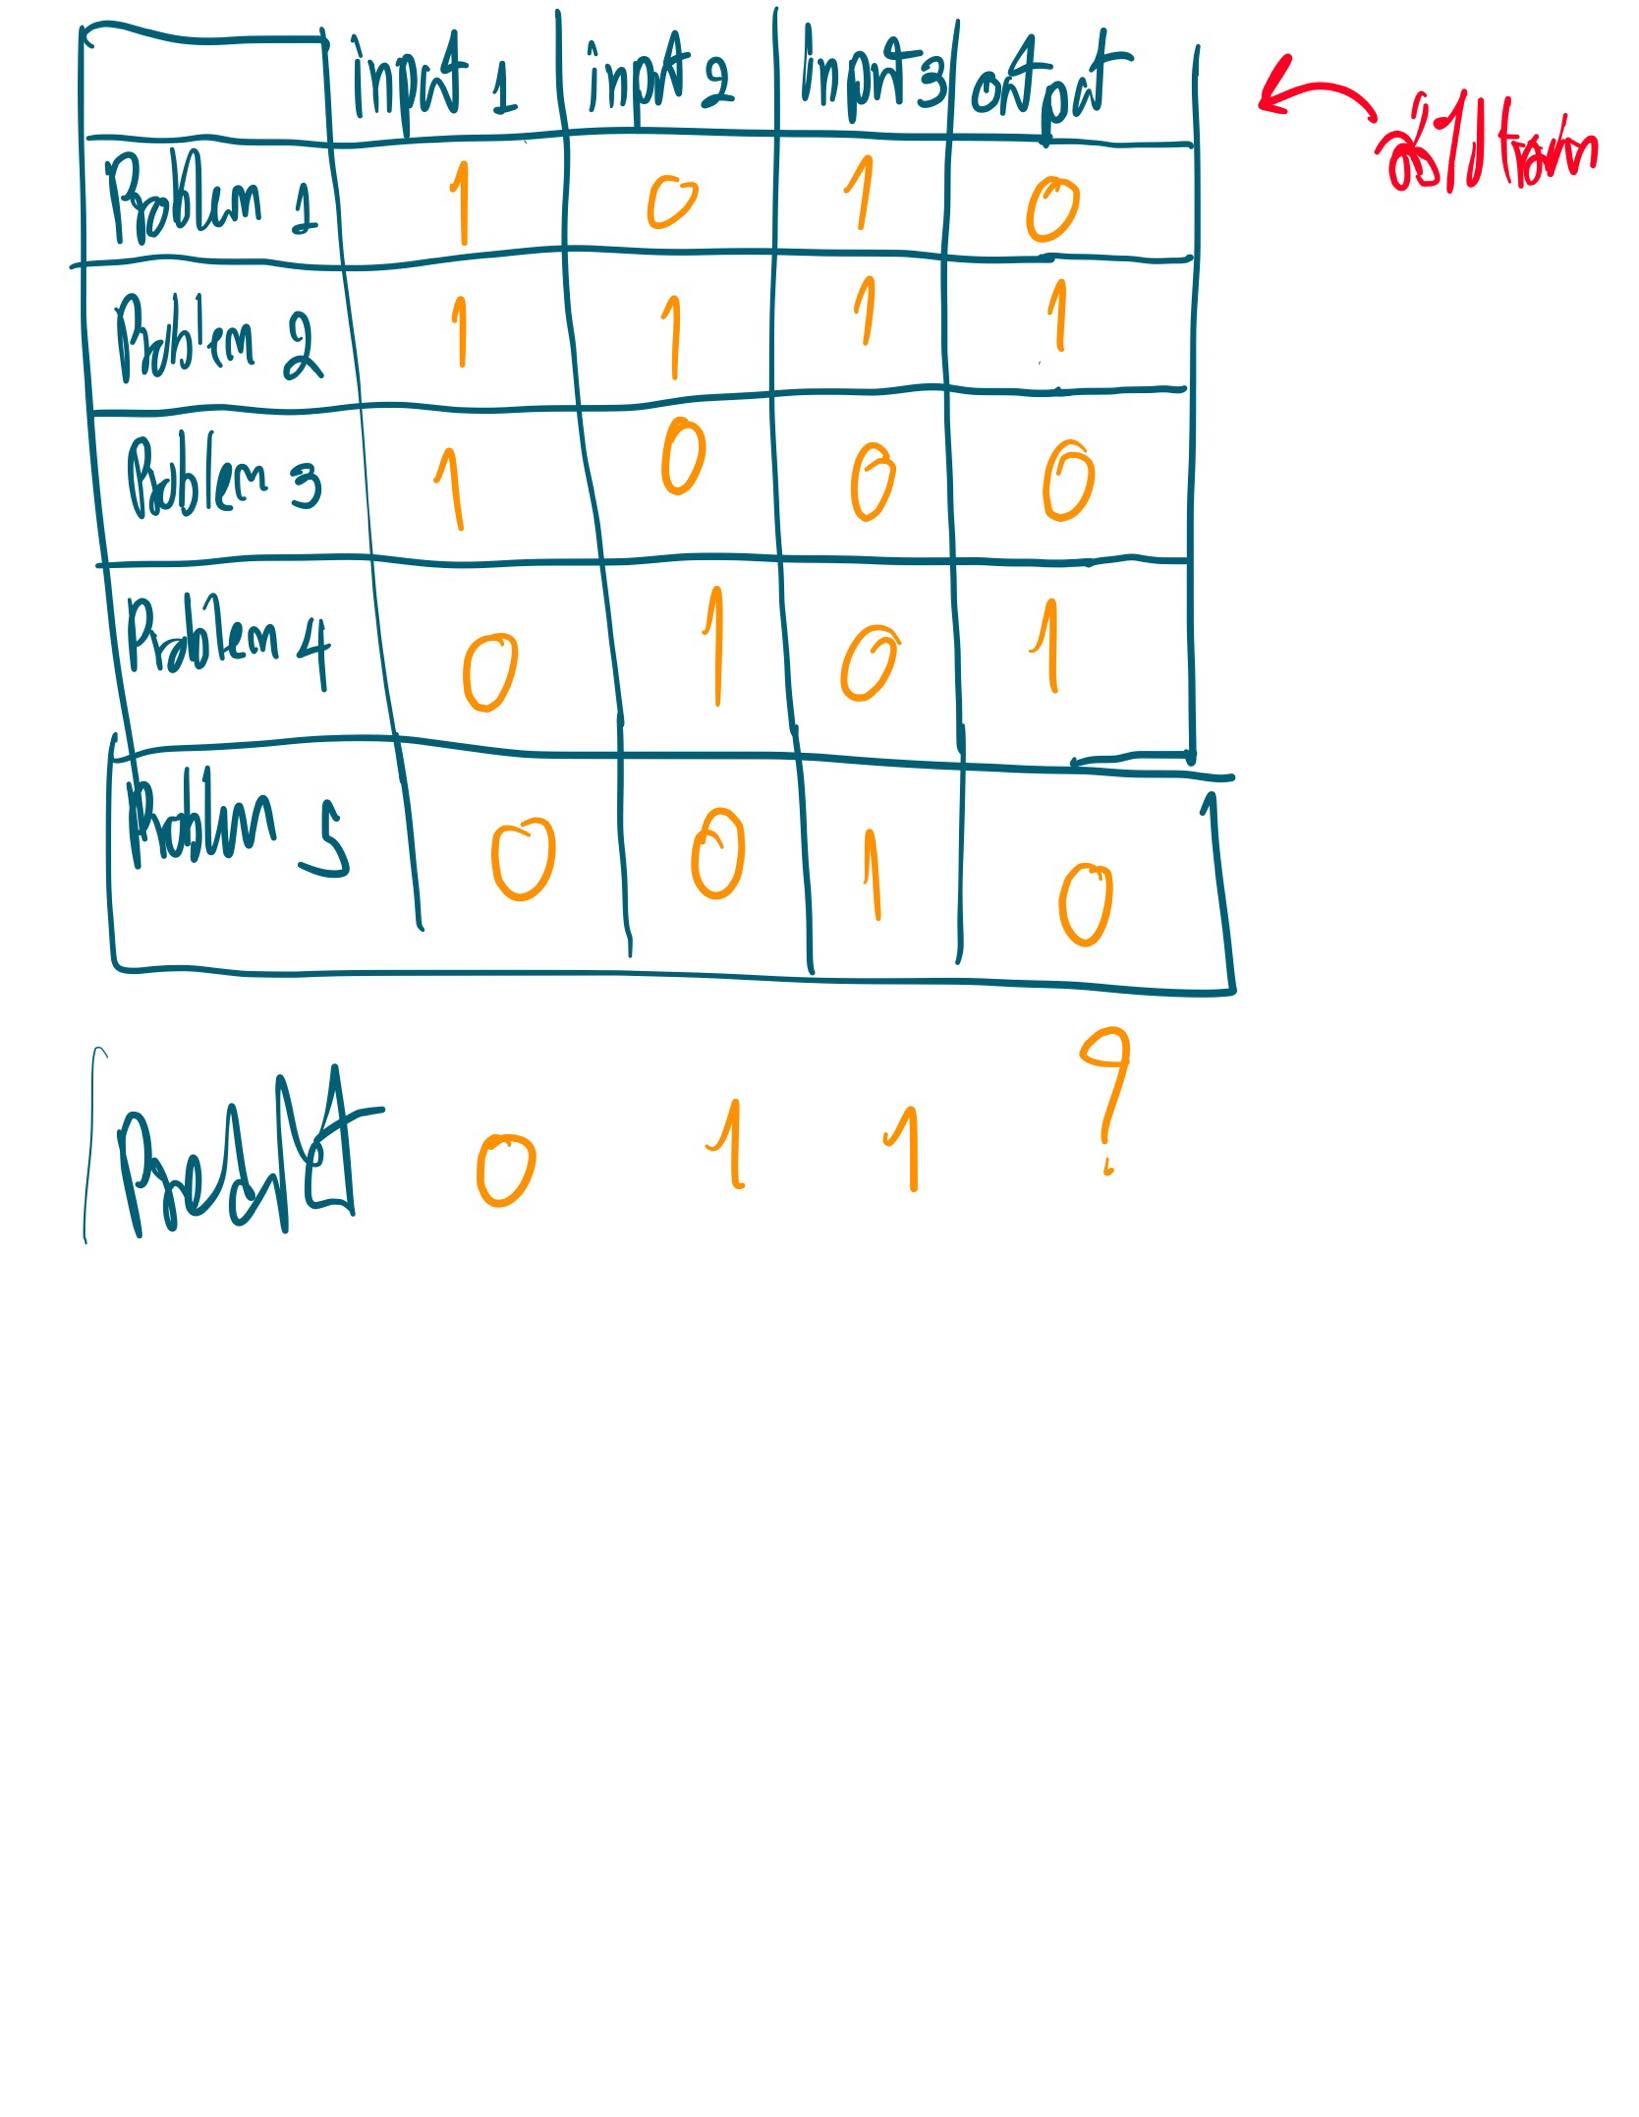 input 1 input 2 input 3 output
Problem 1 1 0 1 0
Problem 2 1 1 1 1
Problem 3 1 0 0 0
Problem 4 0 1 0 1
Problem 5 0 0 1 0
Predict 0 1 1 ?